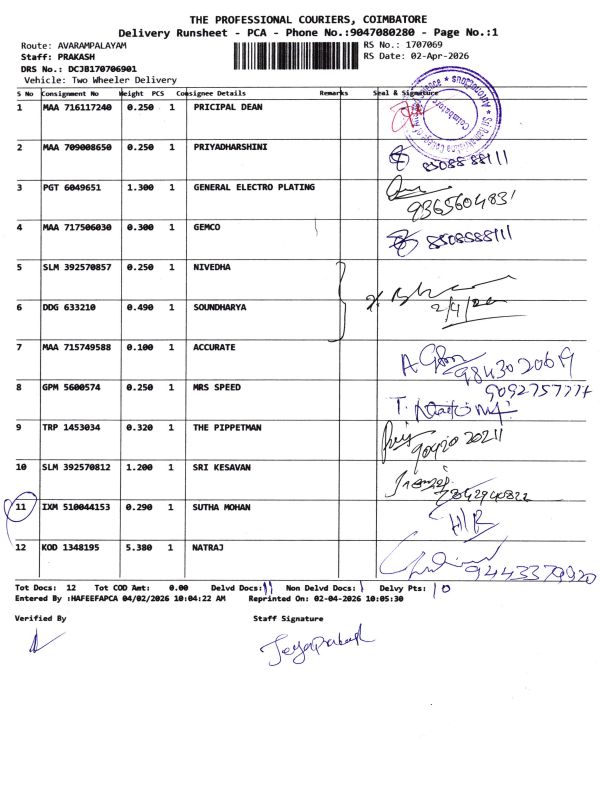 THE PROFESSIONAL COURIERS, COIMBATORE
Delivery Runsheet - PCA - Phone No.:9047080280 - Page No.:1
Route: AVARAMPALAYAM
RS No.: 1707069
Staff: PRAKASH
RS Date: 02-Apr-2026
DRS No.: DCJB170706901
Vehicle: Two Wheeler Delivery
S No Consignment No Weight PCS Consignee Details Remarks Seal & Signature
1 MAA 716117240 0.250 1 PRICIPAL DEAN
Coimbatore
2 MAA 709008650 0.250 1 PRIYADHARSHINI
8508588111
3 PGT 6049651 1.300 1 GENERAL ELECTRO PLATING
9365604831
4 MAA 717506030 0.300 1 GEMCO
8508588111
5 SLM 392570857 0.250 1 NIVEDHA
6 DDG 633210 0.490 1 SOUNDHARYA
2/4/26
7 MAA 715749588 0.100 1 ACCURATE
9843020619
8 GPM 5600574 0.250 1 MRS SPEED
9092757774
9 TRP 1453034 0.320 1 THE PIPPETMAN
90420 20211
10 SLM 392570812 1.200 1 SRI KESAVAN
7842940822
11 IXM 510044153 0.290 1 SUTHA MOHAN
12 KOD 1348195 5.380 1 NATRAJ
9443379920
Tot Docs: 12 Tot COD Amt: 0.00 Delvd Docs: 11 Non Delvd Docs: 1 Delvy Pts: 10
Entered By :HAFEEFAPCA 04/02/2026 10:04:22 AM Reprinted On: 02-04-2026 10:05:30
Verified By Staff Signature
Jeyaprakash